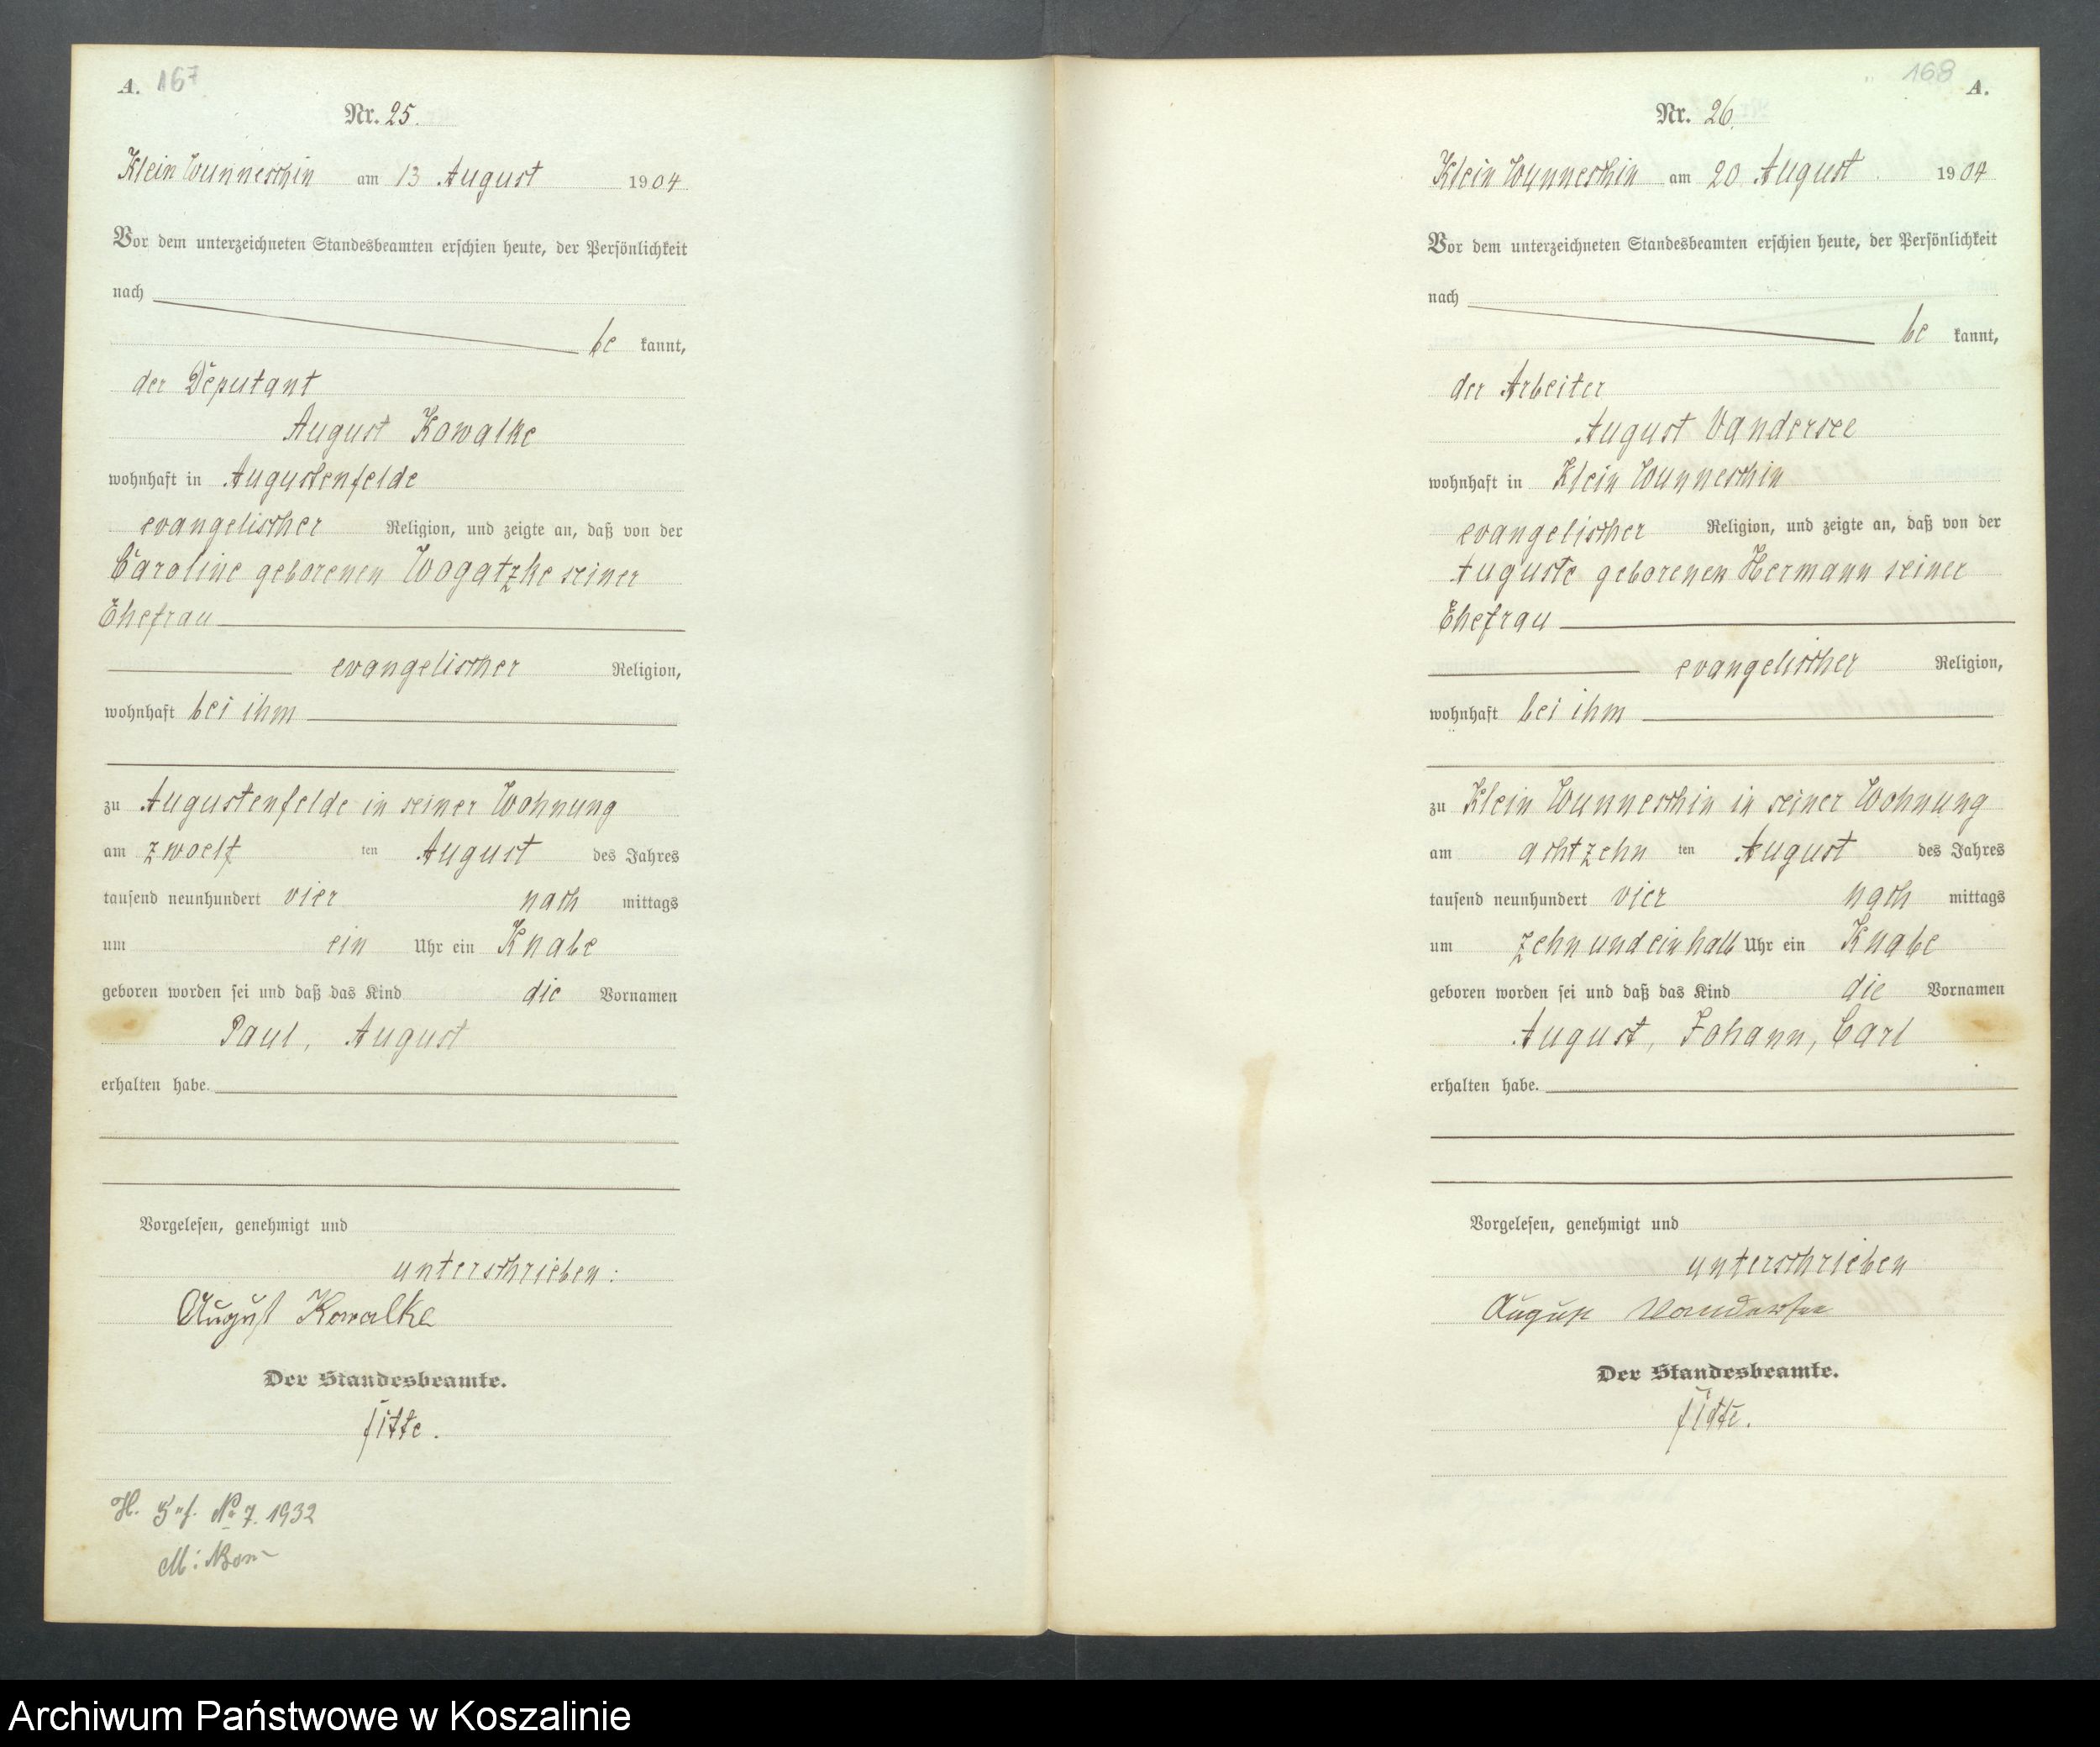 A. 167
Nr. 25.
Klein Wunneschin am 13 August 1904
Vor dem unterzeichneten Standesbeamten erschien heute, der Persönlichkeit
nach
be kannt,
der Deputant
August Kowalke
wohnhaft in Augustenfelde
evangelischer Religion, und zeigte an, daß von der
Caroline geborenen Wogatzke seiner
Ehefrau
evangelischer Religion,
wohnhaft bei ihm
zu Augustenfelde in seiner Wohnung
am zwoelf ten August des Jahres
tausend neunhundert vier nach mittags
um ein Uhr ein Knabe
geboren worden sei und daß das Kind die Vornamen
Paul, August
erhalten habe.
Vorgelesen, genehmigt und
unterschrieben:
August Kowalke
Der Standesbeamte.
H. No 7. 1932
168 A.
Nr. 26.
Klein Wunneschin am 20 August 1904
Vor dem unterzeichneten Standesbeamten erschien heute, der Persönlichkeit
nach
be kannt,
der Arbeiter
August Vandersee
wohnhaft in Klein Wunneschin
evangelischer Religion, und zeigte an, daß von der
Auguste geborenen Hermann seiner
Ehefrau
evangelischer Religion,
wohnhaft bei ihm
zu Klein Wunneschin in seiner Wohnung
am achtzehn ten August des Jahres
tausend neunhundert vier nach mittags
um zehn und ein halb Uhr ein Knabe
geboren worden sei und daß das Kind die Vornamen
August, Johann, Carl
erhalten habe.
Vorgelesen, genehmigt und
unterschrieben
August Vandersee
Der Standesbeamte.
Archiwum Państwowe w Koszalinie